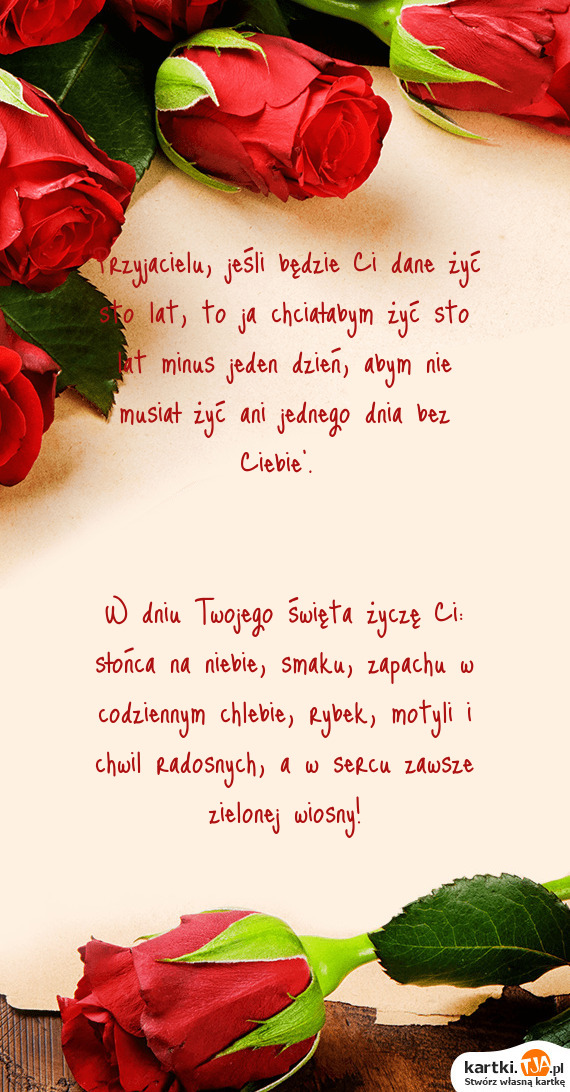 Przyjacielu, jeśli będzie Ci dane żyć
sto lat, to ja chciałabym żyć sto
lat minus jeden dzień, abym nie
musiał żyć ani jednego dnia bez
Ciebie'.
W dniu Twojego święta życzę Ci:
słońca na niebie, smaku, zapachu w
codziennym chlebie, rybek, motyli i
chwil radosnych, a w sercu zawsze
zielonej wiosny!
kartki.TJA.pl
Stwórz własną kartkę